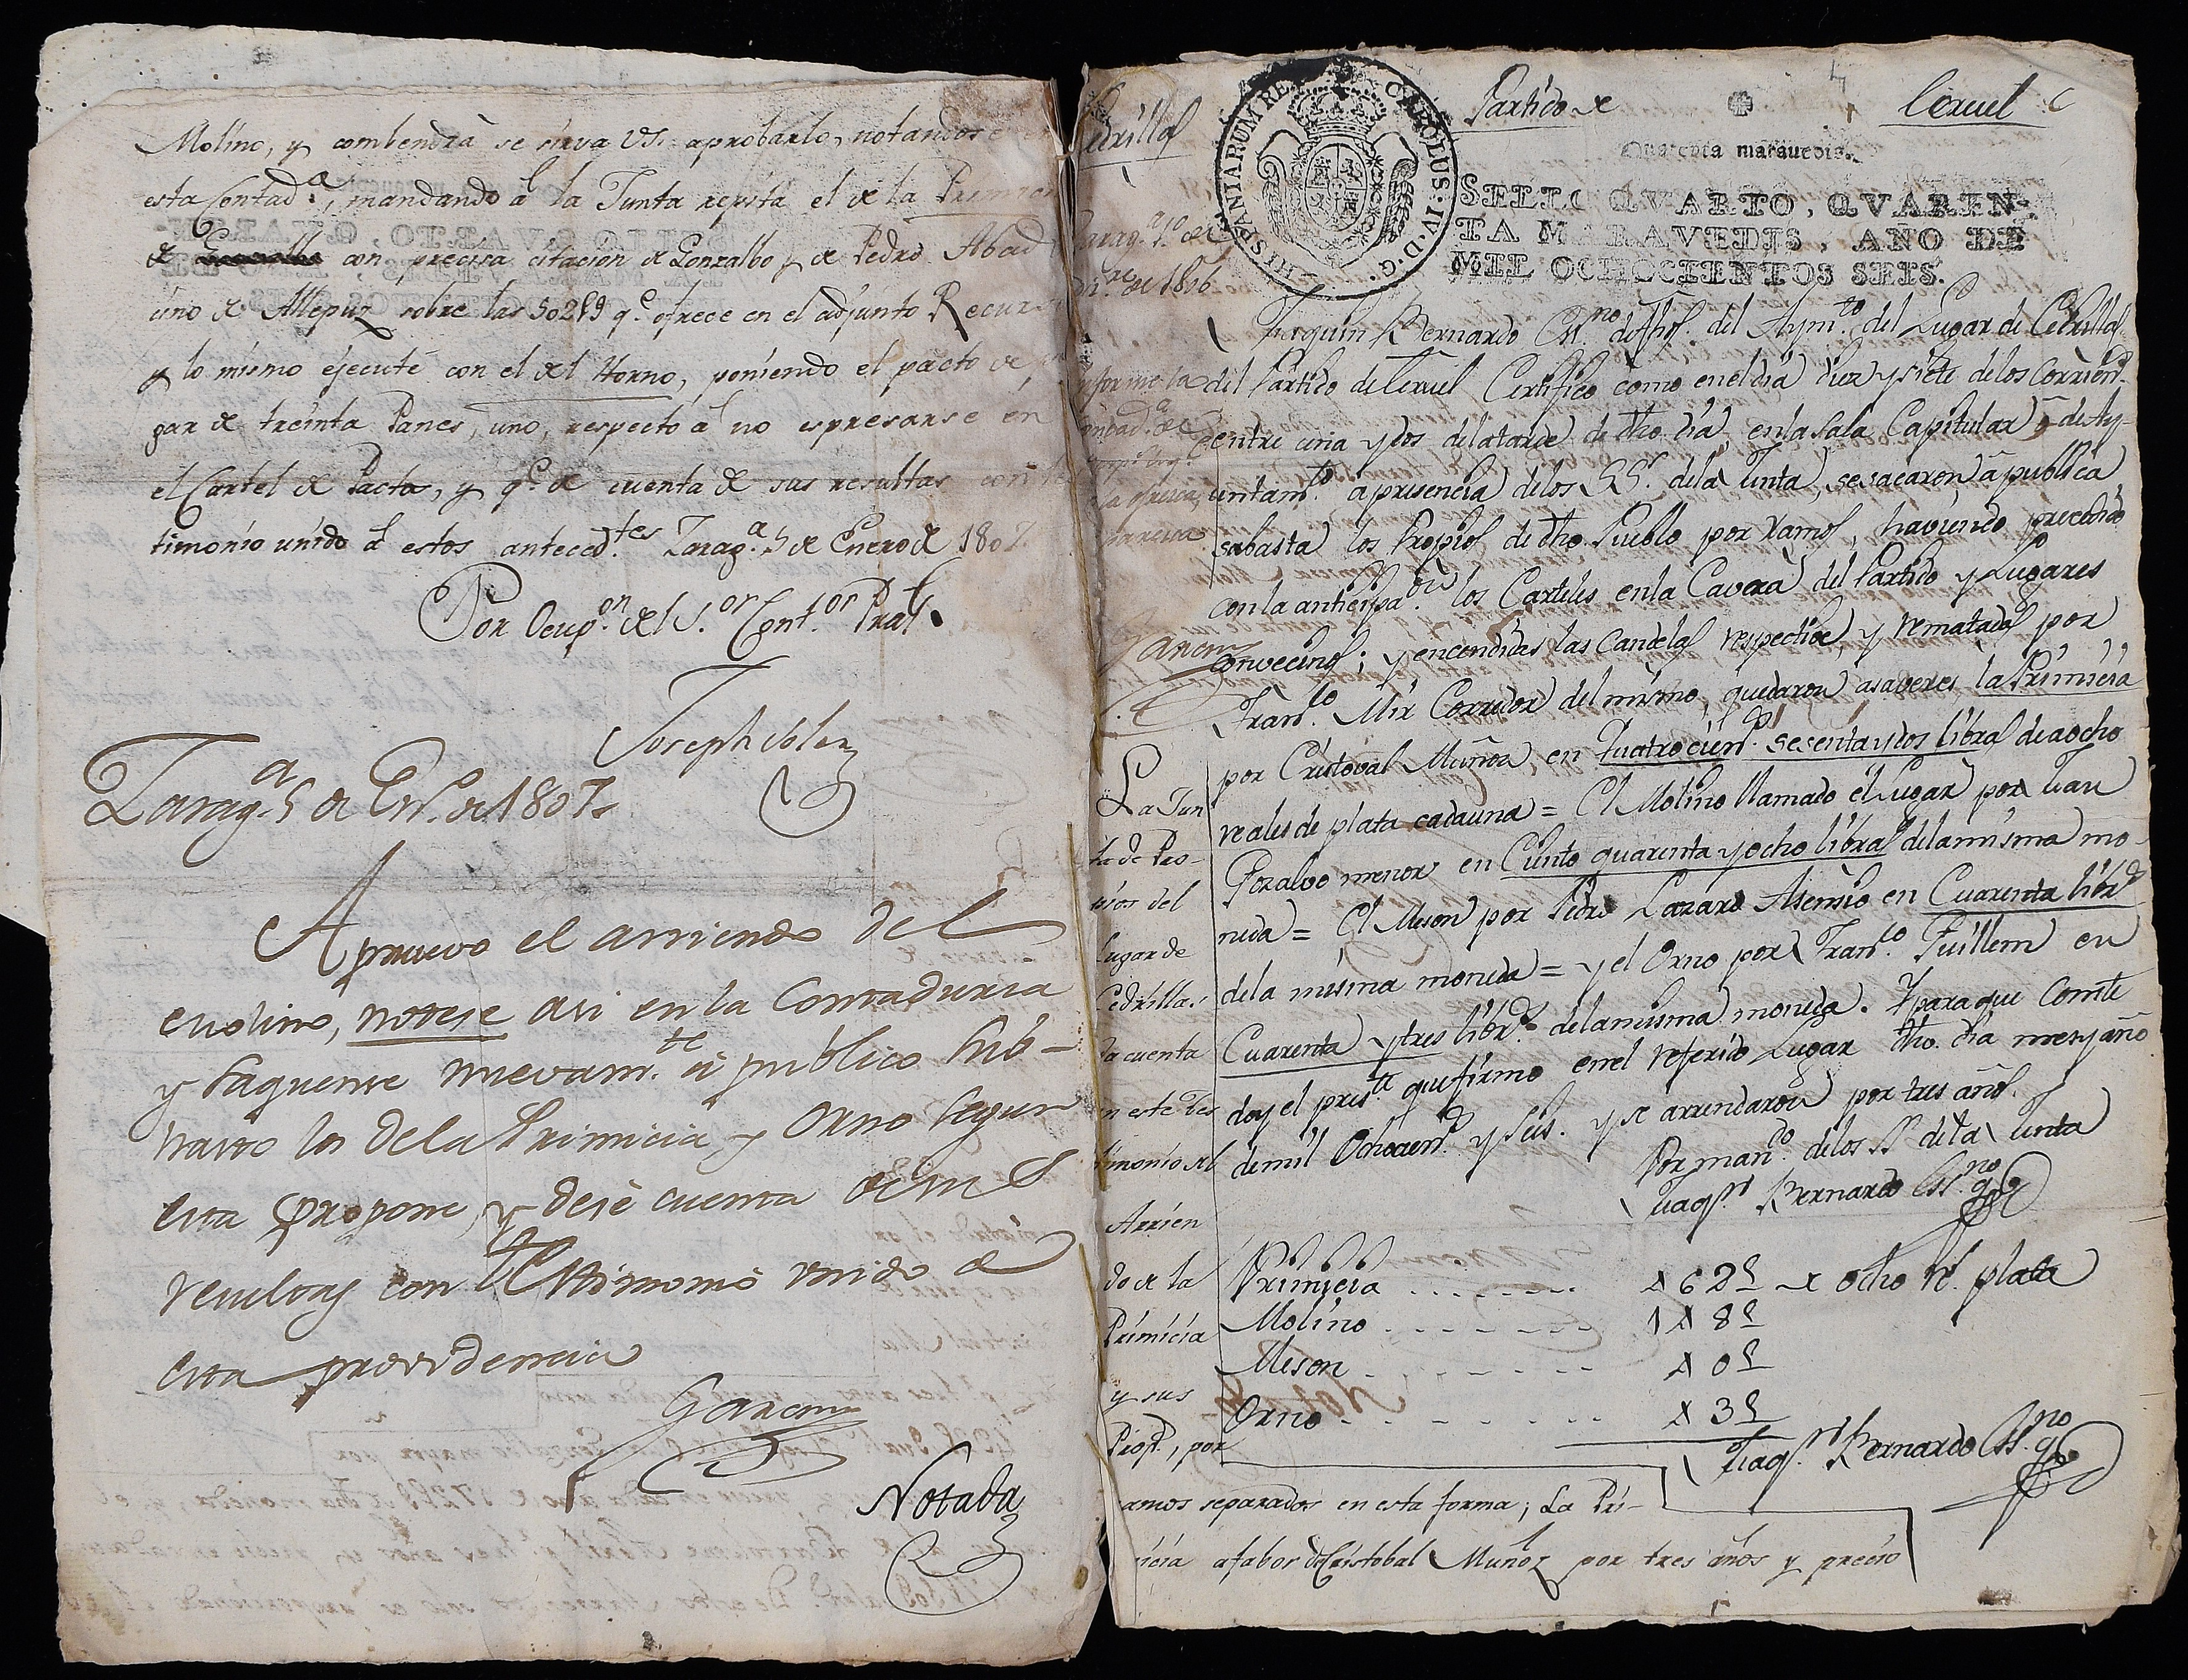 Molino, y combendrà se sirva VS. aprobarlo, notandose en
esta Contad.ª, mandando â la Junta repita el de la Primicia
de con precisa citacion de Gonzalbo y de Pedro Abad
uno de Allepuz sobre las 502£9 q.e ofrece en el adjunto Recurso
y lo mismo éjecuté con el del Horno, poniendo el pacto de
gar de treinta Panes, uno, respecto â no espresarse en
el Cartel de Pactos, y q.e de cuenta de sus resultas con
timonio unido â estos anteced.tes Zarag.ª 5 de Enero de 1807.
Por Ocup.on del S.or Cont.or Pral.
Joseph Solan
Zarag.ª 5 de En.o de 1807.
Apruevo el arriendo del
molino, notese asi en la Contaduria
y saquense nuevam.te â publico sub-
hasto los de la Primicia y Orno segun
esta propone, y dese cuenta de sus
resultas con testimonio unido a
esta providencia
Garcini
Notada
Cedrillas
Partido de
Teruel
HISPANIARUM REX CAROLUS IV D G
Quarenta marauedis.
SELLO QVARTO, QVAREN-
TA MARAVEDIS, AÑO DE
MIL OCHOCIENTOS SEIS.
Zarag.ª 1º de
Di.re de 1806
Informe la
Contad.ª de
Garcini
Juaquin Bernardo Es.no de Fhos. del Aym.to del Lugar de Cedrillas
del Partido de Teruel Certifico como en el dia diez y siete de los Corrient.s
entre una y dos de la tarde de dho dia, en la Sala Capitular de Ay-
untam.to a presencia de los SS.s de la Junta, se sacaron â publica
subasta los Propios de dho. Pueblo por ramos, haviendo precedido
con la anticipa.on los Carteles en la Cavera del Partido y Lugares
convecinos; y encendidas las Candelas respective, y rematadas por
Fran.co Mir Corredor del mismo, quedaron asaveres, la Primicia
por Cristoval Muñoz en Quatrocien.s sesenta y dos libras de a ocho
reales de plata cada una = El Molino llamado el Lugar por Juan
Gozalvo menor en Ciento quarenta y ocho libras de la misma mo-
neda = El Meson por Pedro Lazaro Asensio en Cuarenta libr.s
de la misma moneda = y el Orno por Fran.co Guillem en
Cuarenta y tres libr.s de la misma moneda. Y para que Conste
doy el pres.te que firmo en el referido Lugar dho. dia mes y año
de mil Ochocien.s y Seis. y se arrendaron por tres años.
Por man.do de los SS. de la Junta
Juaq.n Bernardo Es.no
Primicia . . . . . . . 462£ de ocho R.s plata
Molino . . . . . . . 148£
Meson . . . . . . . 40£
Orno . . . . . . . . 43£
Juaq.n Bernardo Es.no
La Jun
ta de Pro-
pios del
Lugar de
Cedrillas
da cuenta
en este Tes
timonio del
Arrien
do de la
Primicia
y sus
Prop.s, por
ramos separados en esta forma; La Pri-
micia afabor de Cristobal Muñoz por tres años y precio